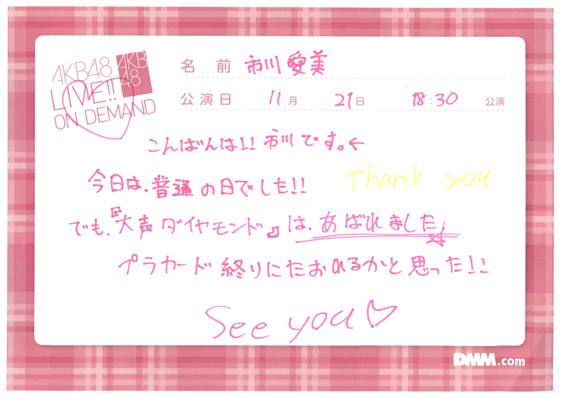 AKB48
LIVE!!
ON DEMAND
AKB
48
名 前 市川愛美
公演日 11月 21日 18:30 公演
こんばんは!! 市川です。←
今日は、普通の日でした!!
Thank you
でも、『大声ダイヤモンド』は、あばれました
プラカード終りにたおれるかと思った!!
See you♡
DMM.com